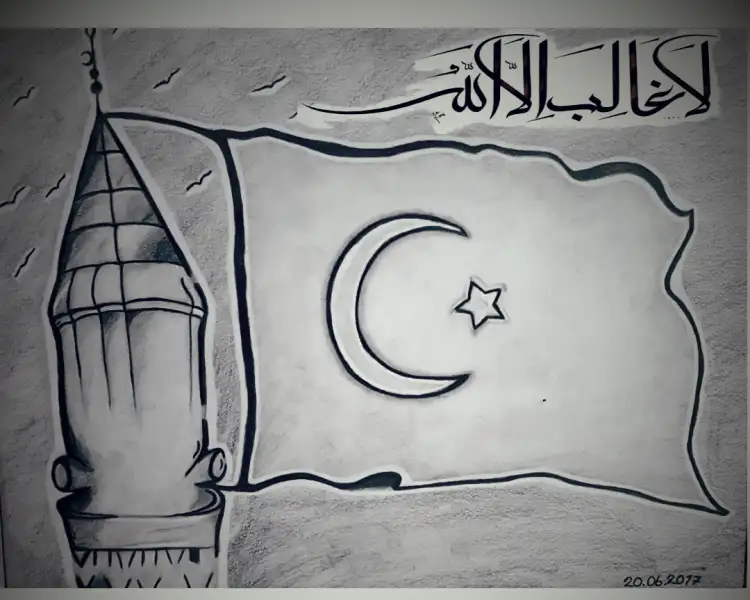 لا غالب إلا الله
20.06.2017